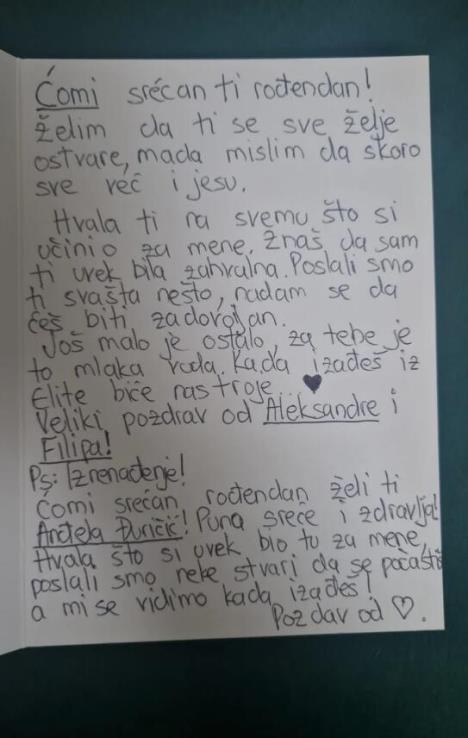 Ćomi srećan ti rođendan!
Želim da ti se sve želje
ostvare, mada mislim da skoro
sve već i jesu.
Hvala ti na svemu što si
učinio za mene, znaš da sam
ti uvek bila zahvalna. Poslali smo
ti svašta nešto, nadam se da
ćeš biti zadovoljan.
Još malo je ostalo, za tebe je
to mlaka voda. Kada izađeš iz
Elite biće nas troje ♥
Veliki pozdrav od Aleksandre i
Filipa!
Ps: Iznenađenje!
Ćomi srećan rođendan želi ti
Anđela Đuričić! Puna sreće i zdravlja!
Hvala što si uvek bio tu za mene,
poslali smo neke stvari da se počastiš
a mi se vidimo kada izađeš!
Pozdav od ♡.